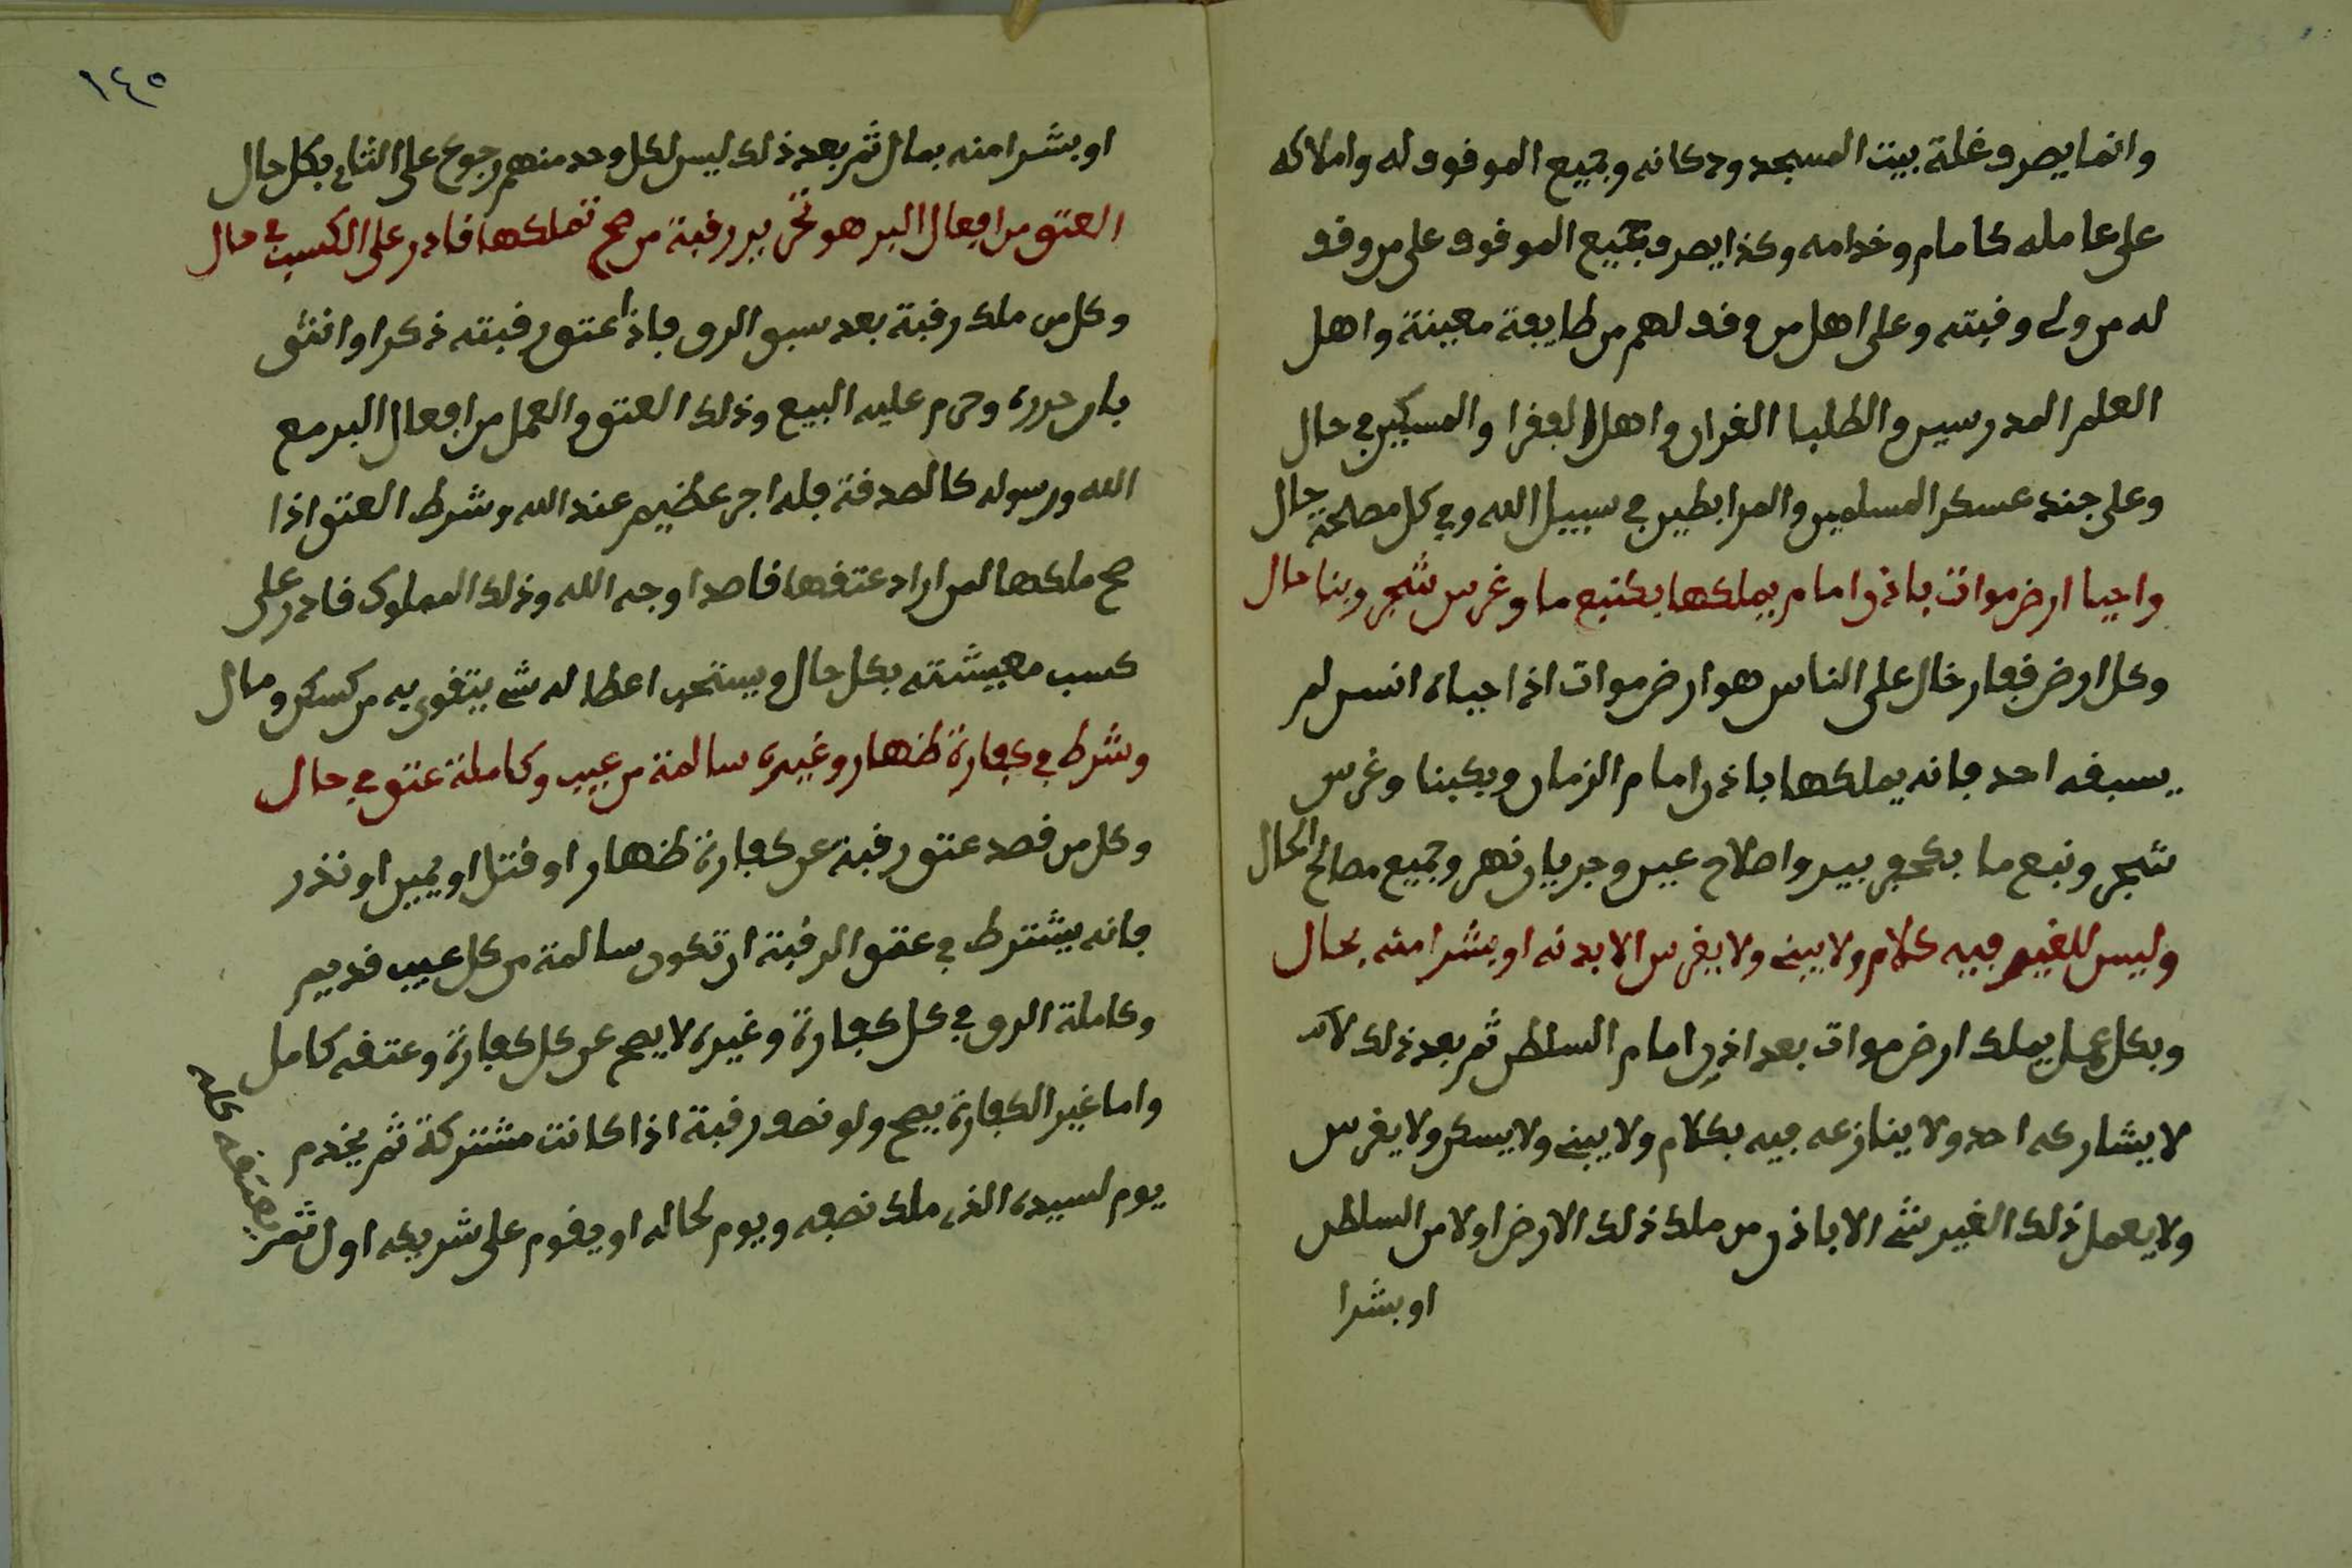 وانما يصرف غلة بيت المسجد ودكانه وجميع الموقوف له واملاكه
على عامله كامام وخدامه وكذا يصرف جميع الموقوف على من وقف
له من ولى وقبته وعلى اهل من وقف لهم من طايفة معينة واهل
العلم المدرسين والطلبا القران واهل الفقرا والمسكين في حال
وعلى جند عسكر المسلمين والمرابطين في سبيل الله وفي كل مصلحة حال
واحيا ارض موات باذن امام يملكها بكنبع ما وغرس شجر وبنا حال
وكل ارض قفار خال على الناس هو ارض موات اذا احياه انسن لم
يسبقه احد فانه يملكها باذن امام الزمان وبكبنا وغرس
شجر ونبع ما بكحفر بير واصلاح عين وجريان نهر وجميع مصالح الحال
وليس للغير فيه كلام ولا يبنى ولا يغرس الا بدنه او بشرا منه بحال
وبكل عمل يملك ارض موات بعد اذن امام السلطن ثم بعد ذلك
لا يشاركه احد ولا ينازعه فيه بكلام ولا يبنى ولا يسكن ولا يغرس
ولا يعمل ذلك الغير شى الا باذن من ملك ذلك الارض اولا من السلطن
او بشرا
١٤٥
او بشرا منه بمال ثم بعد ذلك ليس لكل وحد منهم رجوع على الثانى بكل حال
العتق من افعال البر هو تحرير رقبة من صح تملكها قادر على الكسب في حال
وكل من ملك رقبة بعد سبق الرق فاذا عتق رقبته ذكرا او انثى
بان حرره وحرم عليه البيع وذلك العتق والعمل من افعال البر مع
الله ورسوله كالصدقة فله اجر عظيم عند الله وشرط العتق اذا
صح ملكها لمن اراد عتقها قاصدا وجه الله وذلك المملوك قادر على
كسب معيشته بكل حال ويستحب اعطا له شى يتقوى به من كسكن ومال
وشرط في كفارة ظهار وغيره سالمة من عيب وكاملة عتق في حال
وكل من قصد عتق رقبة عن كفارة ظهار او قتل او يمين او نذر
فانه يشترط في عتق الرقبة ان تكون سالمة من كل عيب قديم
وكاملة الرق في كل كفارة وغيره لا يصح عن كل كفارة وعتقه كامل
واما غير الكفارة يصح ولو نصف رقبة اذا كانت مشتركة ثم يخدم
يوم لسيده الذى ملك نصفه ويوم لحاله او يقوم على شريكه اول ثم
يعتقه كله